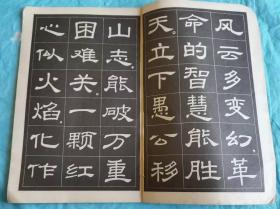 风云多变幻，革
命的智慧能胜
天。立下愚公移
山志，能破万重
困难关。一颗红
心似火焰，化作